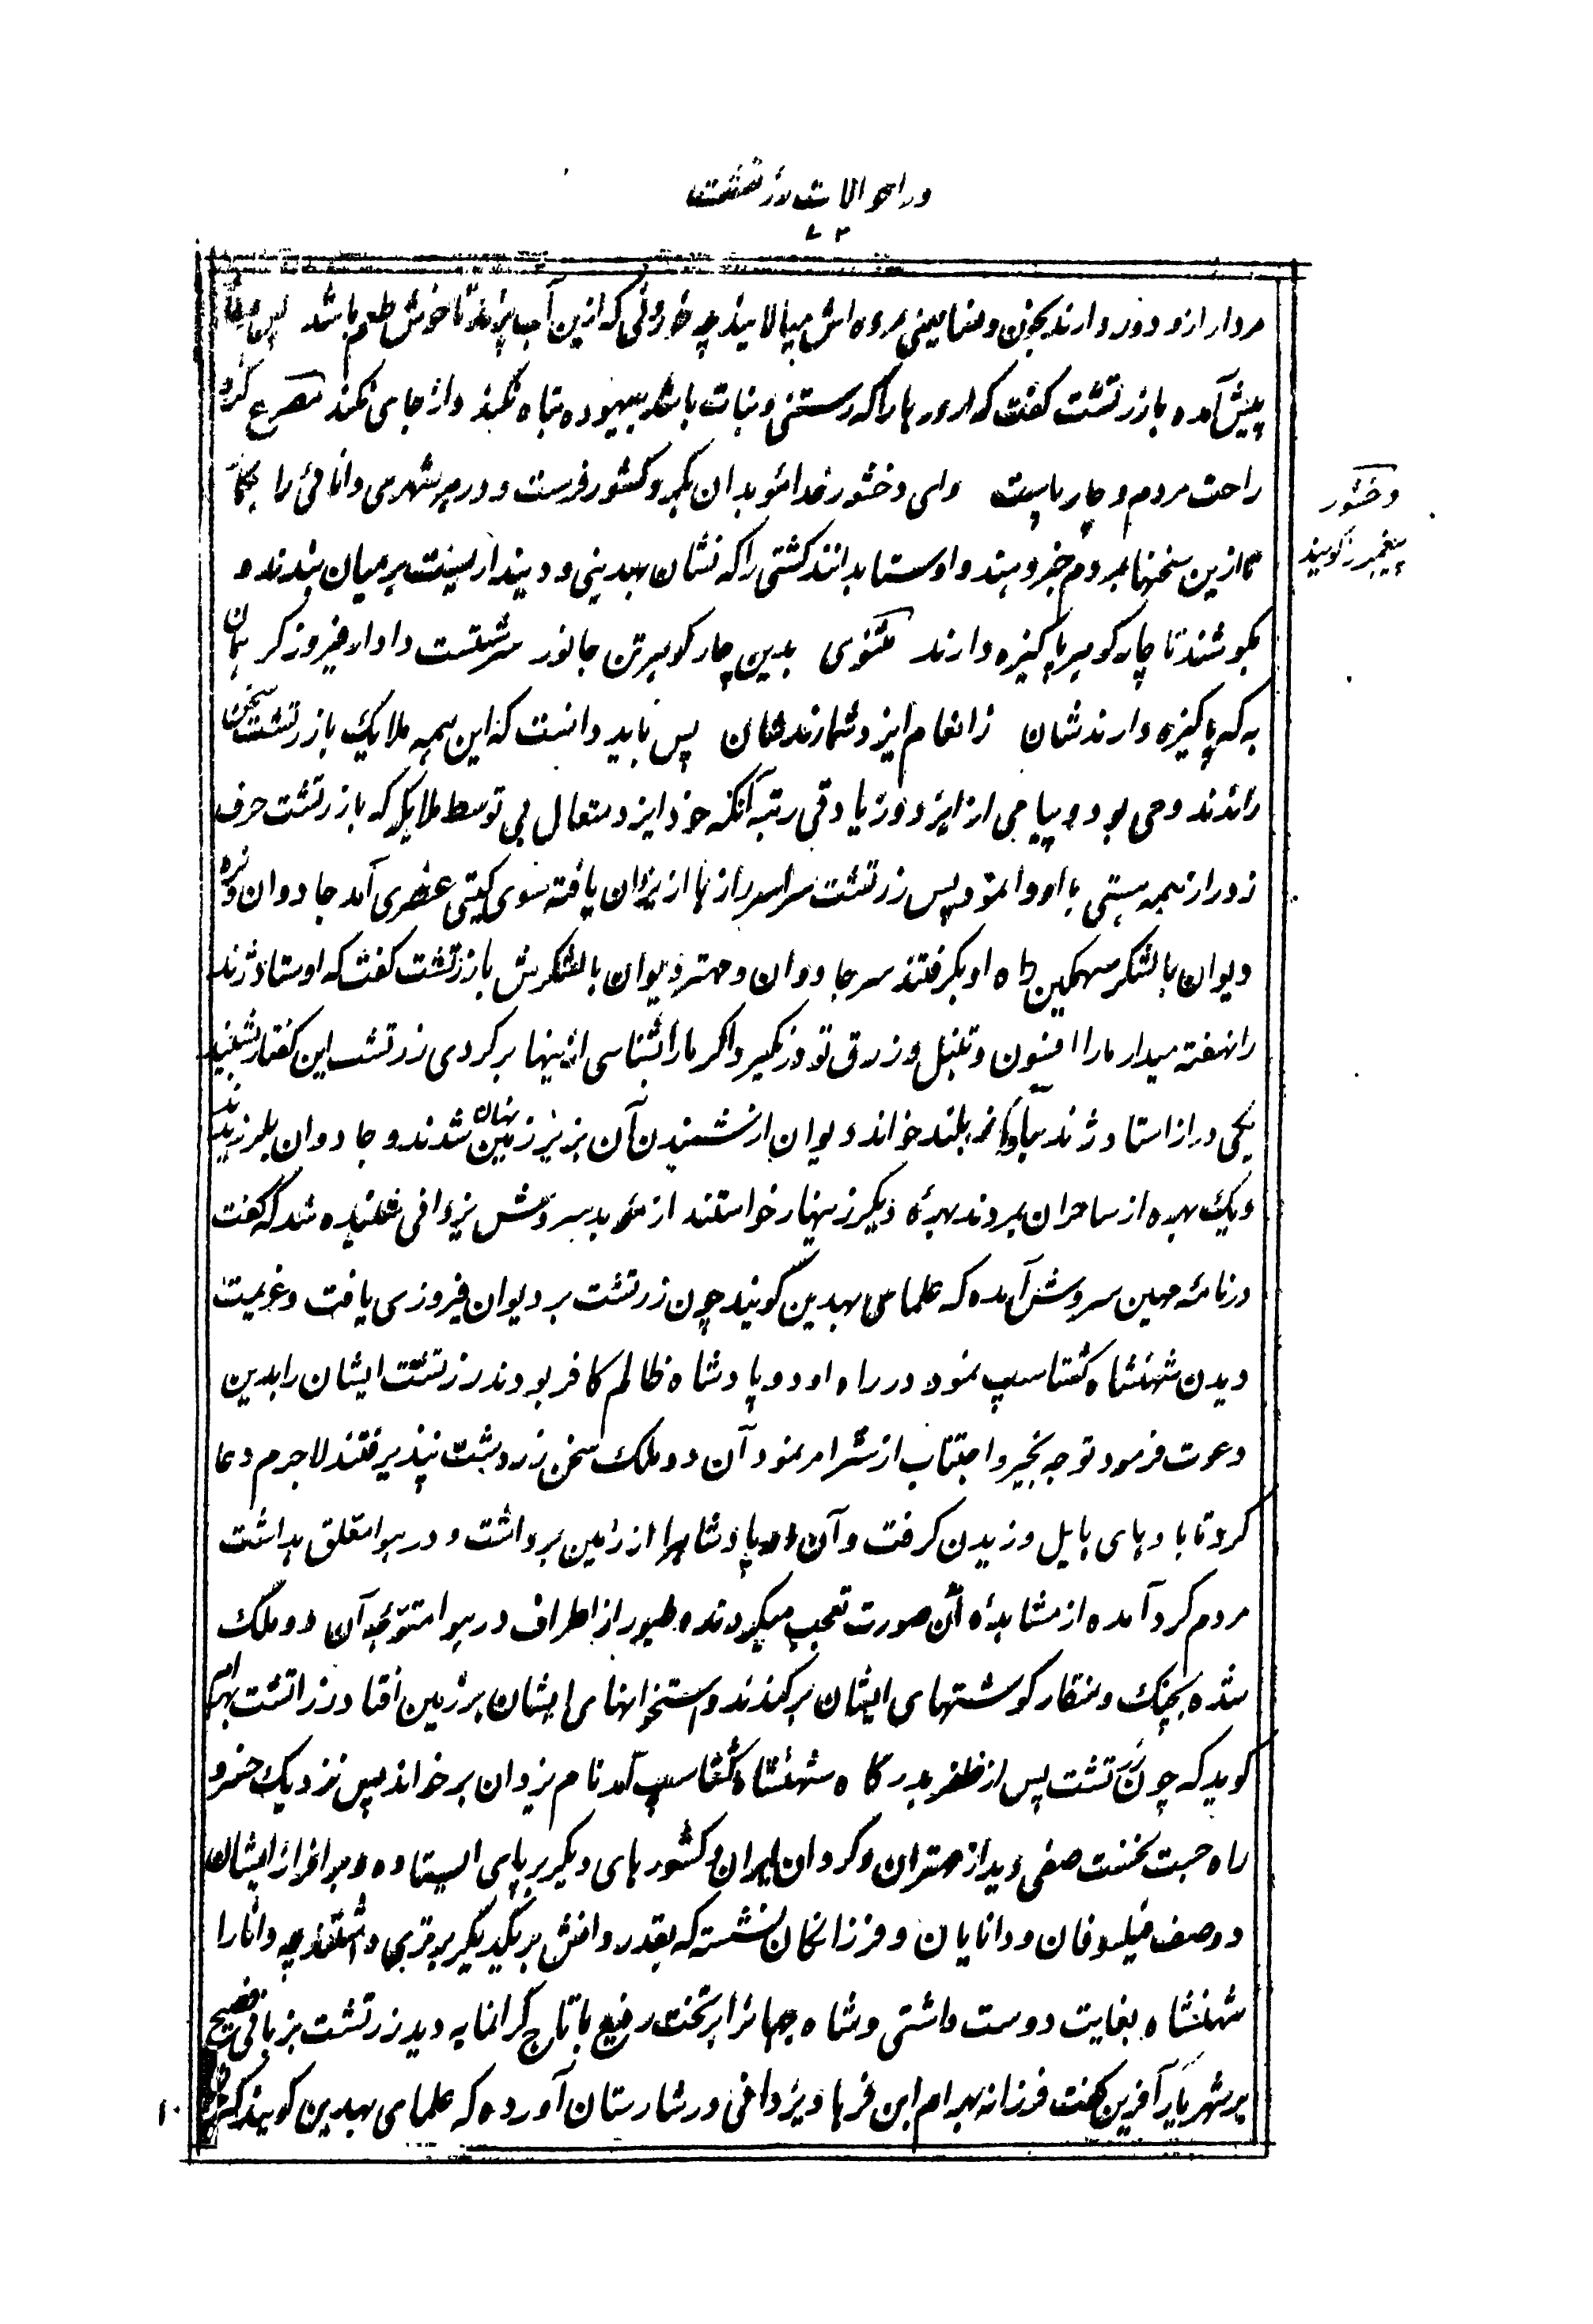 در احوالات زرتشت
۷۳
مردار ازو دور دارند بخون و نسا یعنی مرده اش میالایند چه خورشی که ازین آب پزند ناخوش طعم باشد پس
پیش آمده با زرتشت گفت که اورورها را که رستنی و نبات باشد بیهوده تباه نکنند و از جای نکنند مصرع کزو
راحت مردم و چارپاست وای وخشور خدا موبدان بگیر و کشور فرست و در هر شهری دانائی را بگمار
تا ازین سخنها بمردم خبر دهند و اوستا بدانند کشتی را که نشان بهدینی و دینداریست بر میان بندند و
بکوشند تا چار گوهر پاکیزه دارند مثنوی بدین چار گوهر تن جانور سرشتست دادار فیروزگر همان
به که پاکیزه دارندشان ز انعام ایزد شمارندشان پس باید دانست که این همه ملایک با زرتشت سخن
راندند وحی بود و پیامی از ایزد و زیادتی رتبه آنکه خود ایزد متعال بی توسط ملایک که با زرتشت حرف
زد راز همه هستی با او وا نمود پس زرتشت سراسر رازها از یزدان یافته سوی گیتی عنصری آمد جادوان و نره
دیوان با لشکر سهمگین راه او بگرفتند سر جادوان و مهتر دیوان با لشکرش با زرتشت گفت که اوستا و ژند
را نهفته میدار ما را افسون و تنبل و زرق تو در نگیرد اگر ما را شناسی از ینها بر گردی زرتشت این گفتار بشنید
یکی در از استا و ژند بآواز بلند خواند دیوان از شنیدن آن بزیر زمین نهان شدند و جادوان بلرزیدند
و یک بهره از ساحران بمردند بهره دیگر زینهار خواستند از موبد سروش یزدانی شنیده شد که گفت
در نامه مهین سروش آمده که علمای بهدین گویند چون زرتشت بر دیوان فیروزی یافت و عزیمت
دیدن شهنشاه گشتاسپ نمود در راه او دو پادشاه ظالم کافر بودند زرتشت ایشان را بدین
دعوت فرمود توجه بخیر و اجتناب از شر امر نمود آن دو ملک سخن زردشت نپذیرفتند لاجرم دعا
کرد تا بادهای هایل وزیدن گرفت و آن دو پادشاه را از زمین برداشت و در هوا معلق بداشت
مردم گرد آمده از مشاهده آن صورت تعجب میکردند و طیور از اطراف در هوا متوجه آن دو ملک
شده بچنگ و منقار گوشتهای ایشان برکندند و استخوانهای ایشان بر زمین افتاد زراتشت بهرام
گوید که چون زرتشت پس از ظفر بدرگاه شهنشاه گشتاسپ آمد نام یزدان بر خواند پس نزدیک خسرو
راه جست نخست صفی دید از مهتران و گردان ایران و کشورهای دیگر بر پای ایستاده و بر افراز ایشان
دو صف فیلسوفان و دانایان و فرزانگان نشسته که بقدر دانش بر یکدیگر برتری داشتند چه دانا را
شهنشاه بغایت دوست داشتی و شاه جهانرا بر تخت رفیع با تاج گرانمایه دید زرتشت بزبانی فصیح
بر شهریار آفرین گفت فرزانه بهرام ابن فرهاد یزدانی در شارستان آورده که علمای بهدین گویند که
وخشور
پیغمبر را گویند
۱۰